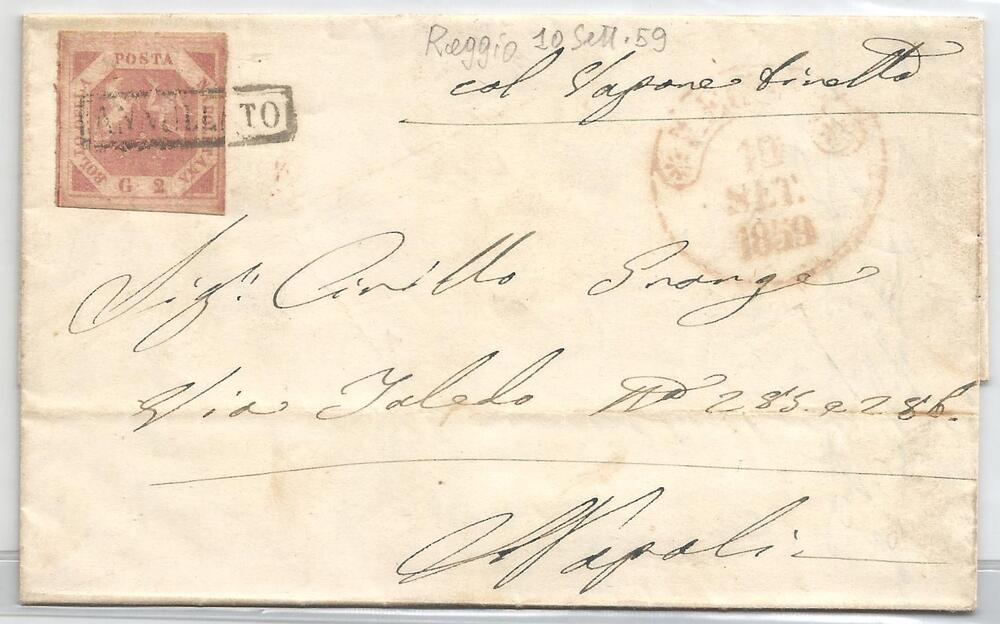 Reggio 10 Sett. 59
col Vapore diretto
POSTA
NAPOLETANA
BOLLO DELLA
G 2
ANNULLATO
10
SET.
1859
Sigr. Cirillo Prange
Via Toledo No 285. e 286.
Napoli